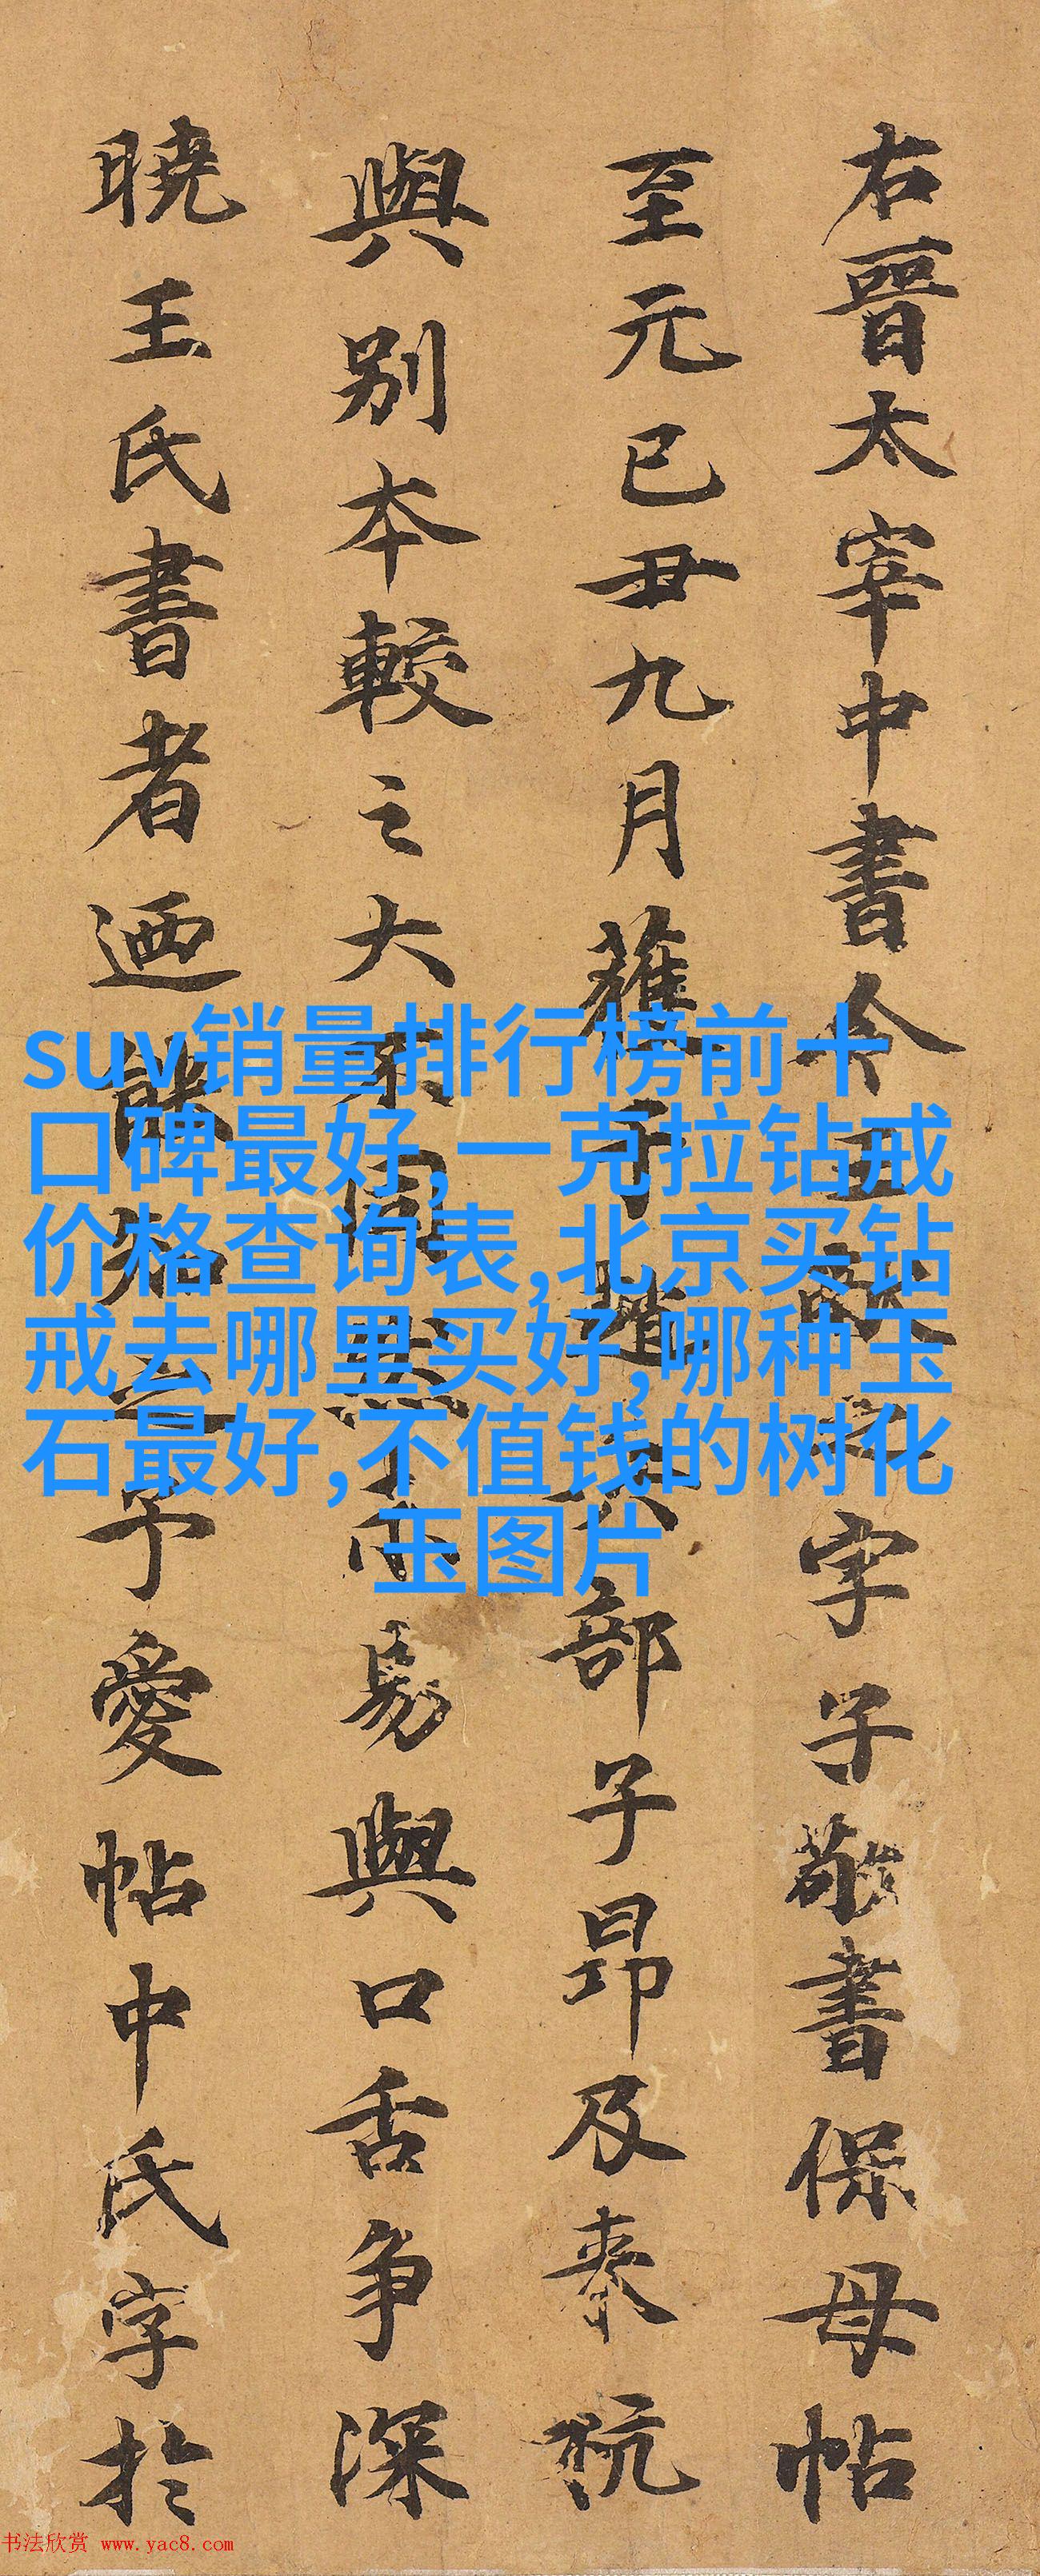 右晉太宰中書令王獻之字子敬書保母帖
至元己丑九月葊于趙兵部子昂及奏杭
與別本較之大不同然不易與口舌争深
曉王氏書者迺能知之予愛帖中氏字於
suv销量排行榜前十
口碑最好,一克拉钻戒
价格查询表,北京买钻
戒去哪里买好,哪种玉
石最好,不值钱的树化
玉图片
书法欣赏 www.yac8.com